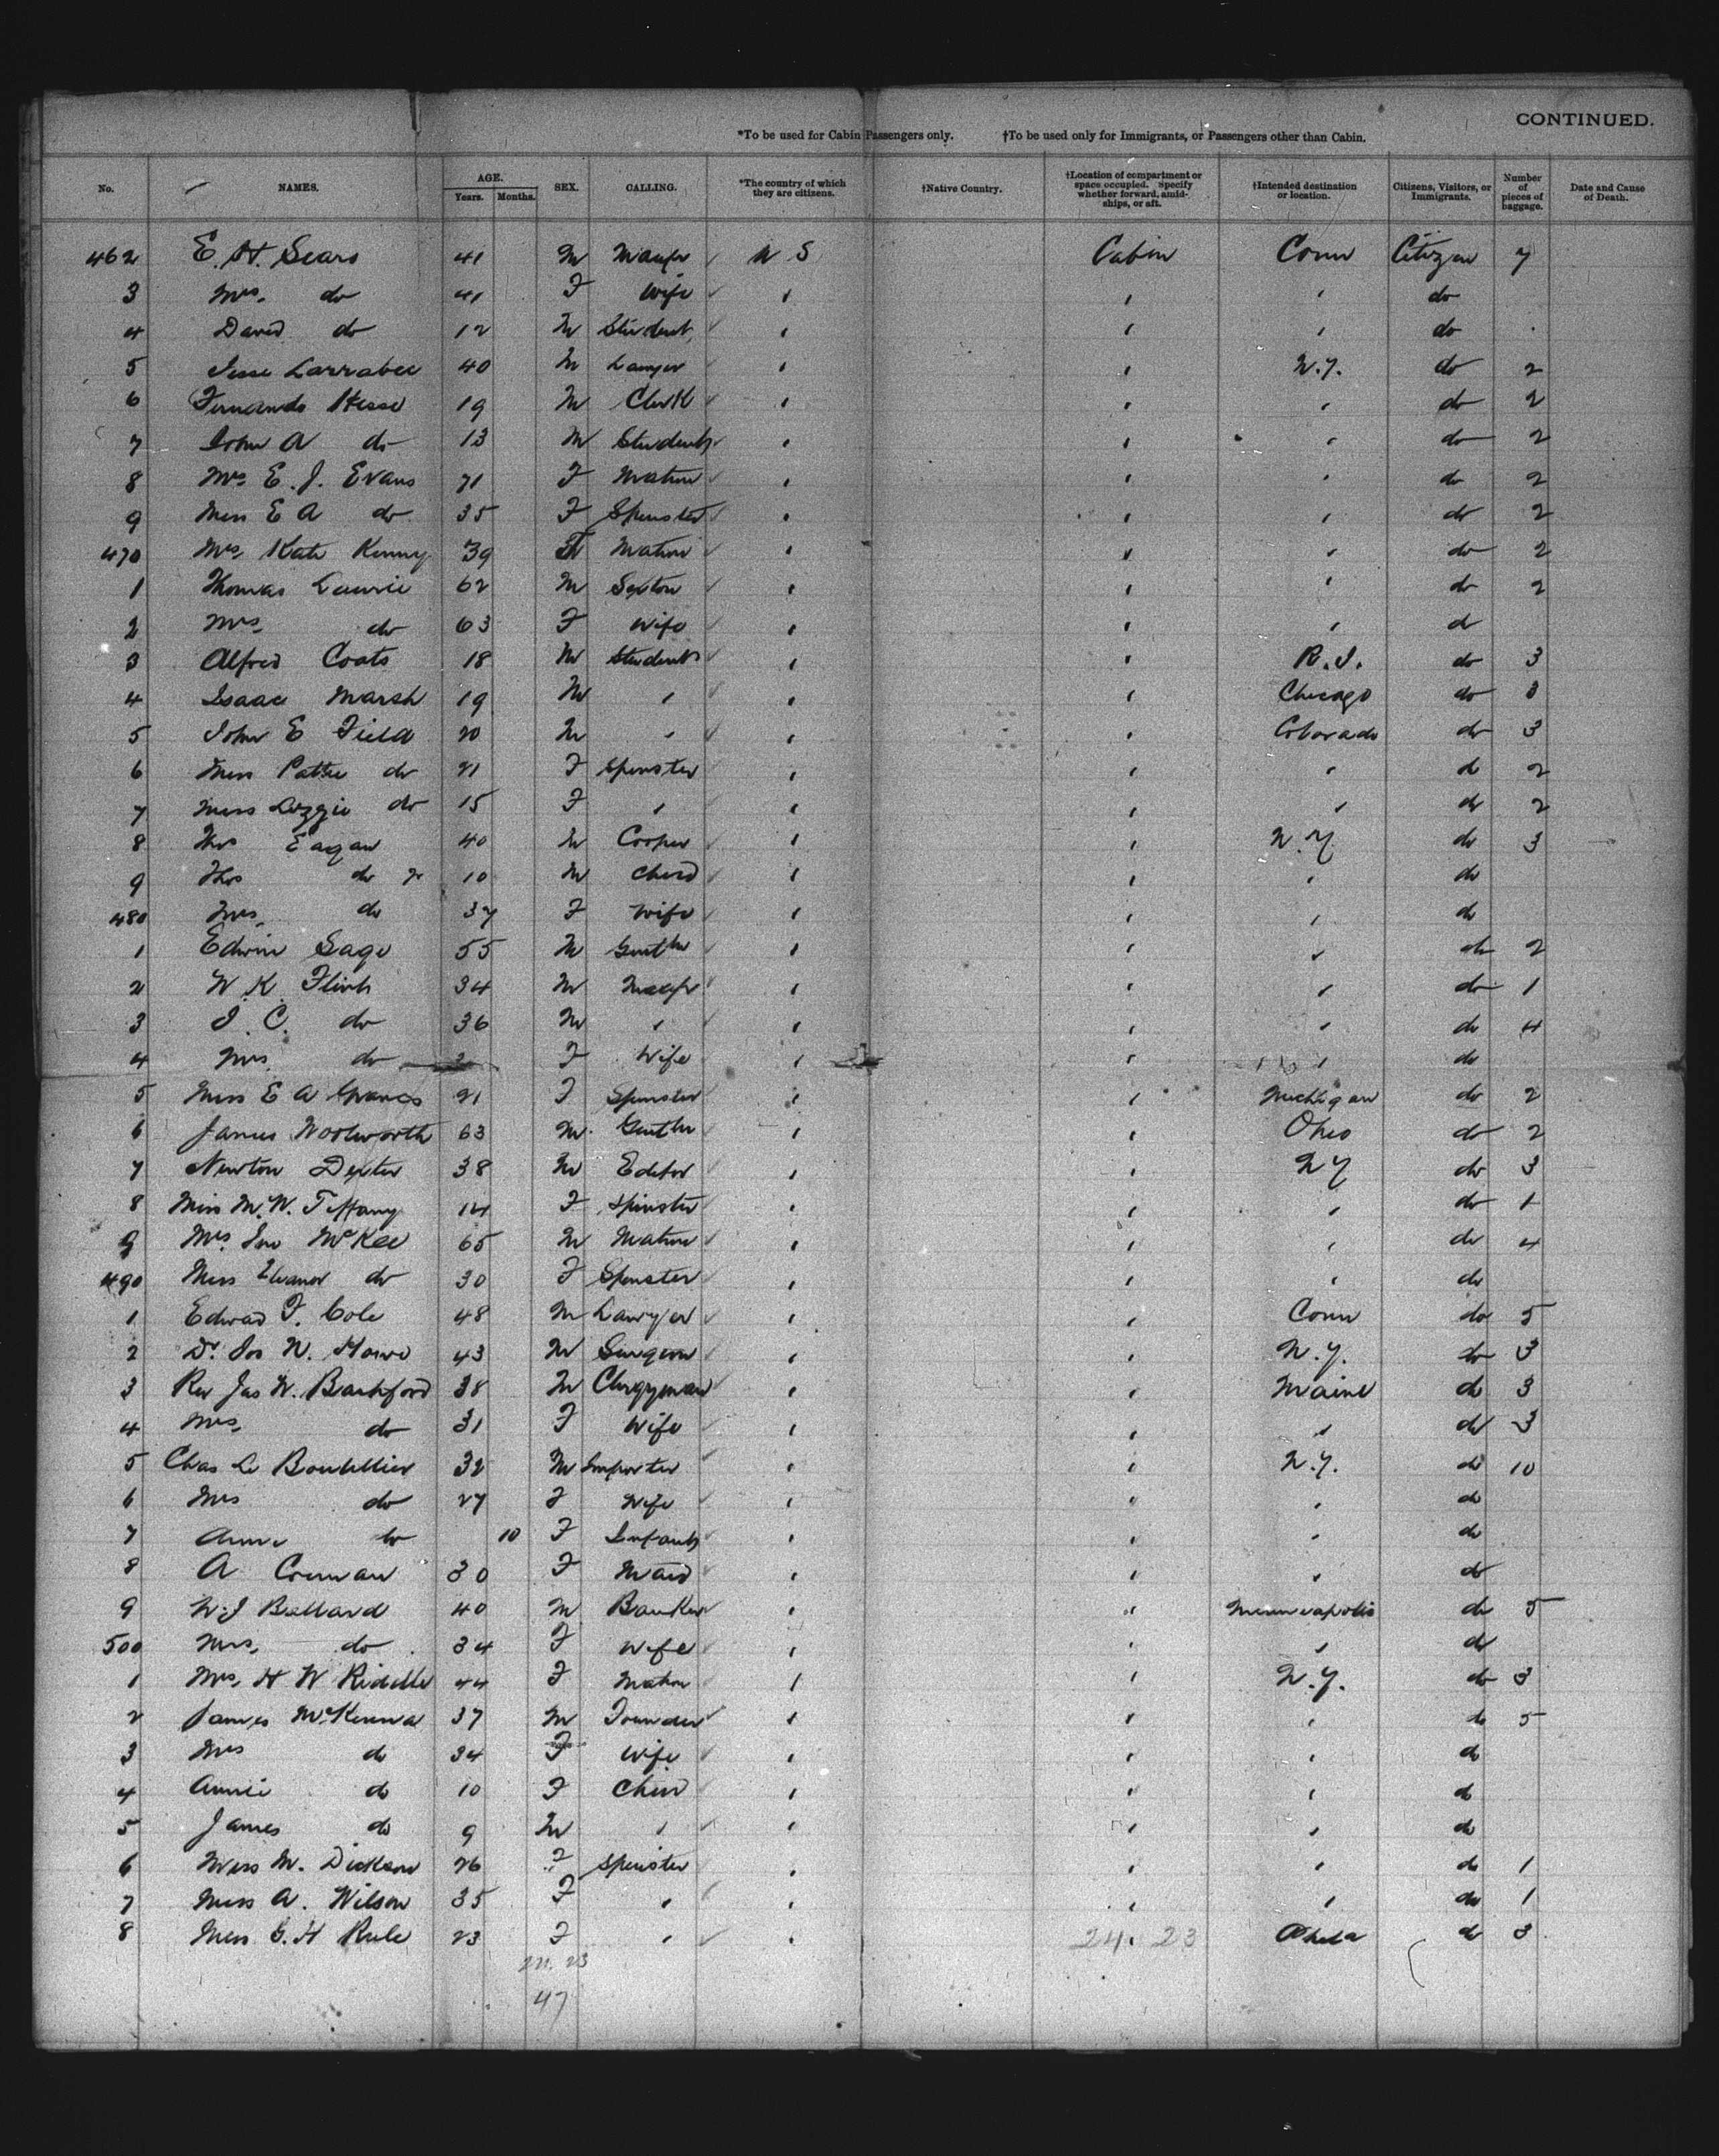 CONTINUED.
*To be used for Cabin Passengers only. †To be used only for Immigrants, or Passengers other than Cabin.
No. NAMES. AGE. Years. Months. SEX. CALLING. *The country of which they are citizens. †Native Country. †Location of compartment or space occupied. Specify whether forward, amidships, or aft. †Intended destination or location. Citizens, Visitors, or Immigrants. Number of pieces of baggage. Date and Cause of Death.
462 E. H. Sears 41 M Manfr U S Cabin Conn Citizen 7
3 Mrs. do 41 F Wife " " " do
4 David do 12 M Student " " " do
5 Jesse Larrabee 40 M Lawyer " " N.Y. do 2
6 Fernando Hesse 19 M Clerk " " " do 2
7 John A do 13 M Student " " " do 2
8 Mrs E. J. Evans 71 F Matron " " " do 2
9 Miss E A do 35 F Spinster " " " do 2
470 Mrs Kate Kenny 39 F Matron " " " do 2
1 Thomas Laurie 62 M Sexton " " " do 2
2 Mrs do 63 F Wife " " " do
3 Alfred Coats 18 M Student " " R.I. do 3
4 Isaac Marsh 19 M " " " Chicago do 3
5 John E Field 20 M " " " Colorado do 3
6 Miss Pattie do 21 F Spinster " " " do 2
7 Miss Lizzie do 15 F " " " " do 2
8 Thos Eagan 40 M Cooper " " N.Y. do 3
9 Thos do Jr 10 M Child " " " do
480 Mrs do 37 F Wife " " " do
1 Edwin Sage 55 M Gentln " " " do 2
2 W. K. Flint 34 M Manfr " " " do 1
3 I. C. do 36 M " " " " do 4
4 Mrs. do F Wife " " " do
5 Miss E A Graves 21 F Spinster " " Michigan do 2
6 James Woolworth 63 M Gentln " " Ohio do 2
7 Newton Dexter 38 M Editor " " NY do 3
8 Miss M. W. Tiffany 14 F Spinster " " " do 1
9 Mrs. Jno McKee 65 M Matron " " " do 4
490 Miss Eleanor do 30 F Spinster " " " do
1 Edward F. Cole 48 M Lawyer " " Conn do 5
2 Dr. Jos W. Howe 43 M Surgeon " " N.Y. do 3
3 Rev Jas W. Bashford 38 M Clergyman " " Maine do 3
4 Mrs. do 31 F Wife " " " do 3
5 Chas Le Boutillier 32 M Importer " " N.Y. do 10
6 Mrs do 27 F Wife " " " do
7 Anne do 10 F Infant " " " do
8 A 30 F Maid " " " do
9 W. J Ballard 40 M Banker " " Minneapolis do 5
500 Mrs, do 34 F Wife " " " do
1 Mrs, H W 44 F Matron " " N.Y. do 3
2 James McKenna 37 M Founder " " " do 5
3 Mrs do 34 F Wife " " " do
4 Annie do 10 F Child " " " do
5 James do 9 M " " " " do
6 Miss M. Dickson 26 F Spinster " " " do 1
7 Miss A. Wilson 35 F " " " " do 1
8 Miss G. H Rule 23 F " " " Phila do 3
24. 23
24. 23
47